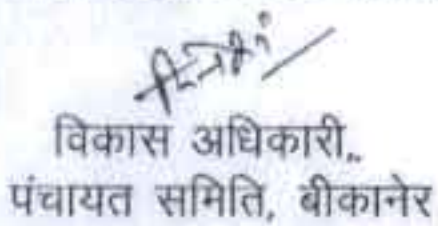 विकास अधिकारी,,
पंचायत समिति, बीकानेर